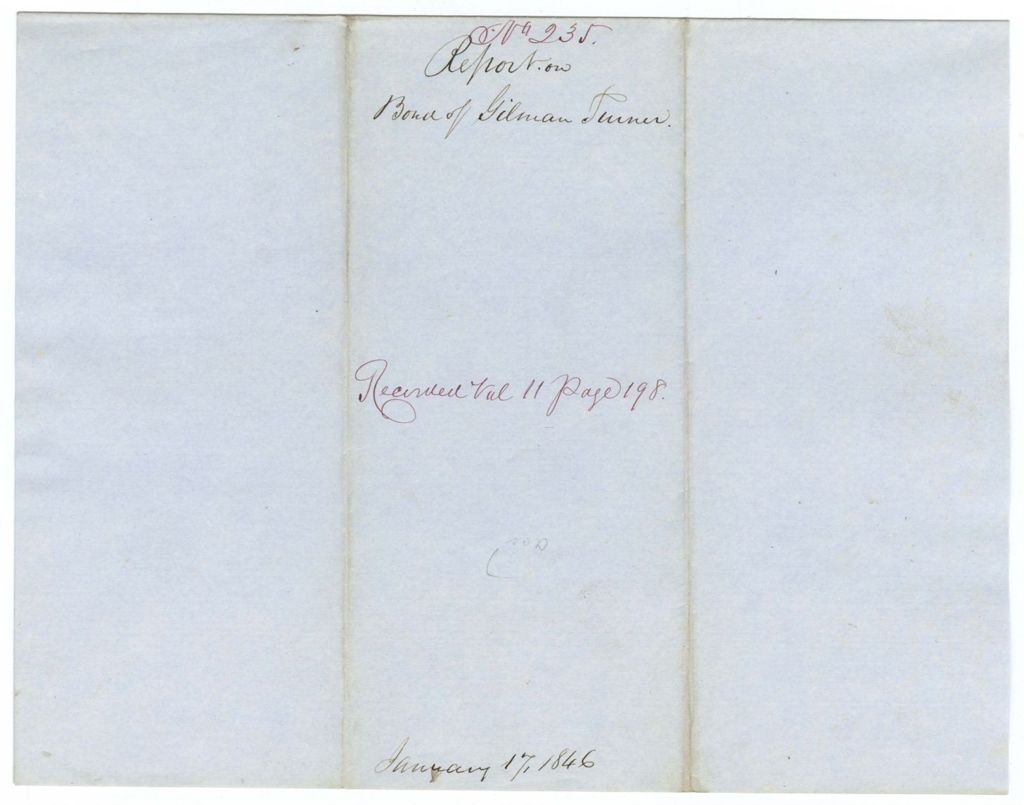 No 235.
Report on
Bond of Gilman Turner.
Recorded Vol 11 Page 198.
January 17, 1846